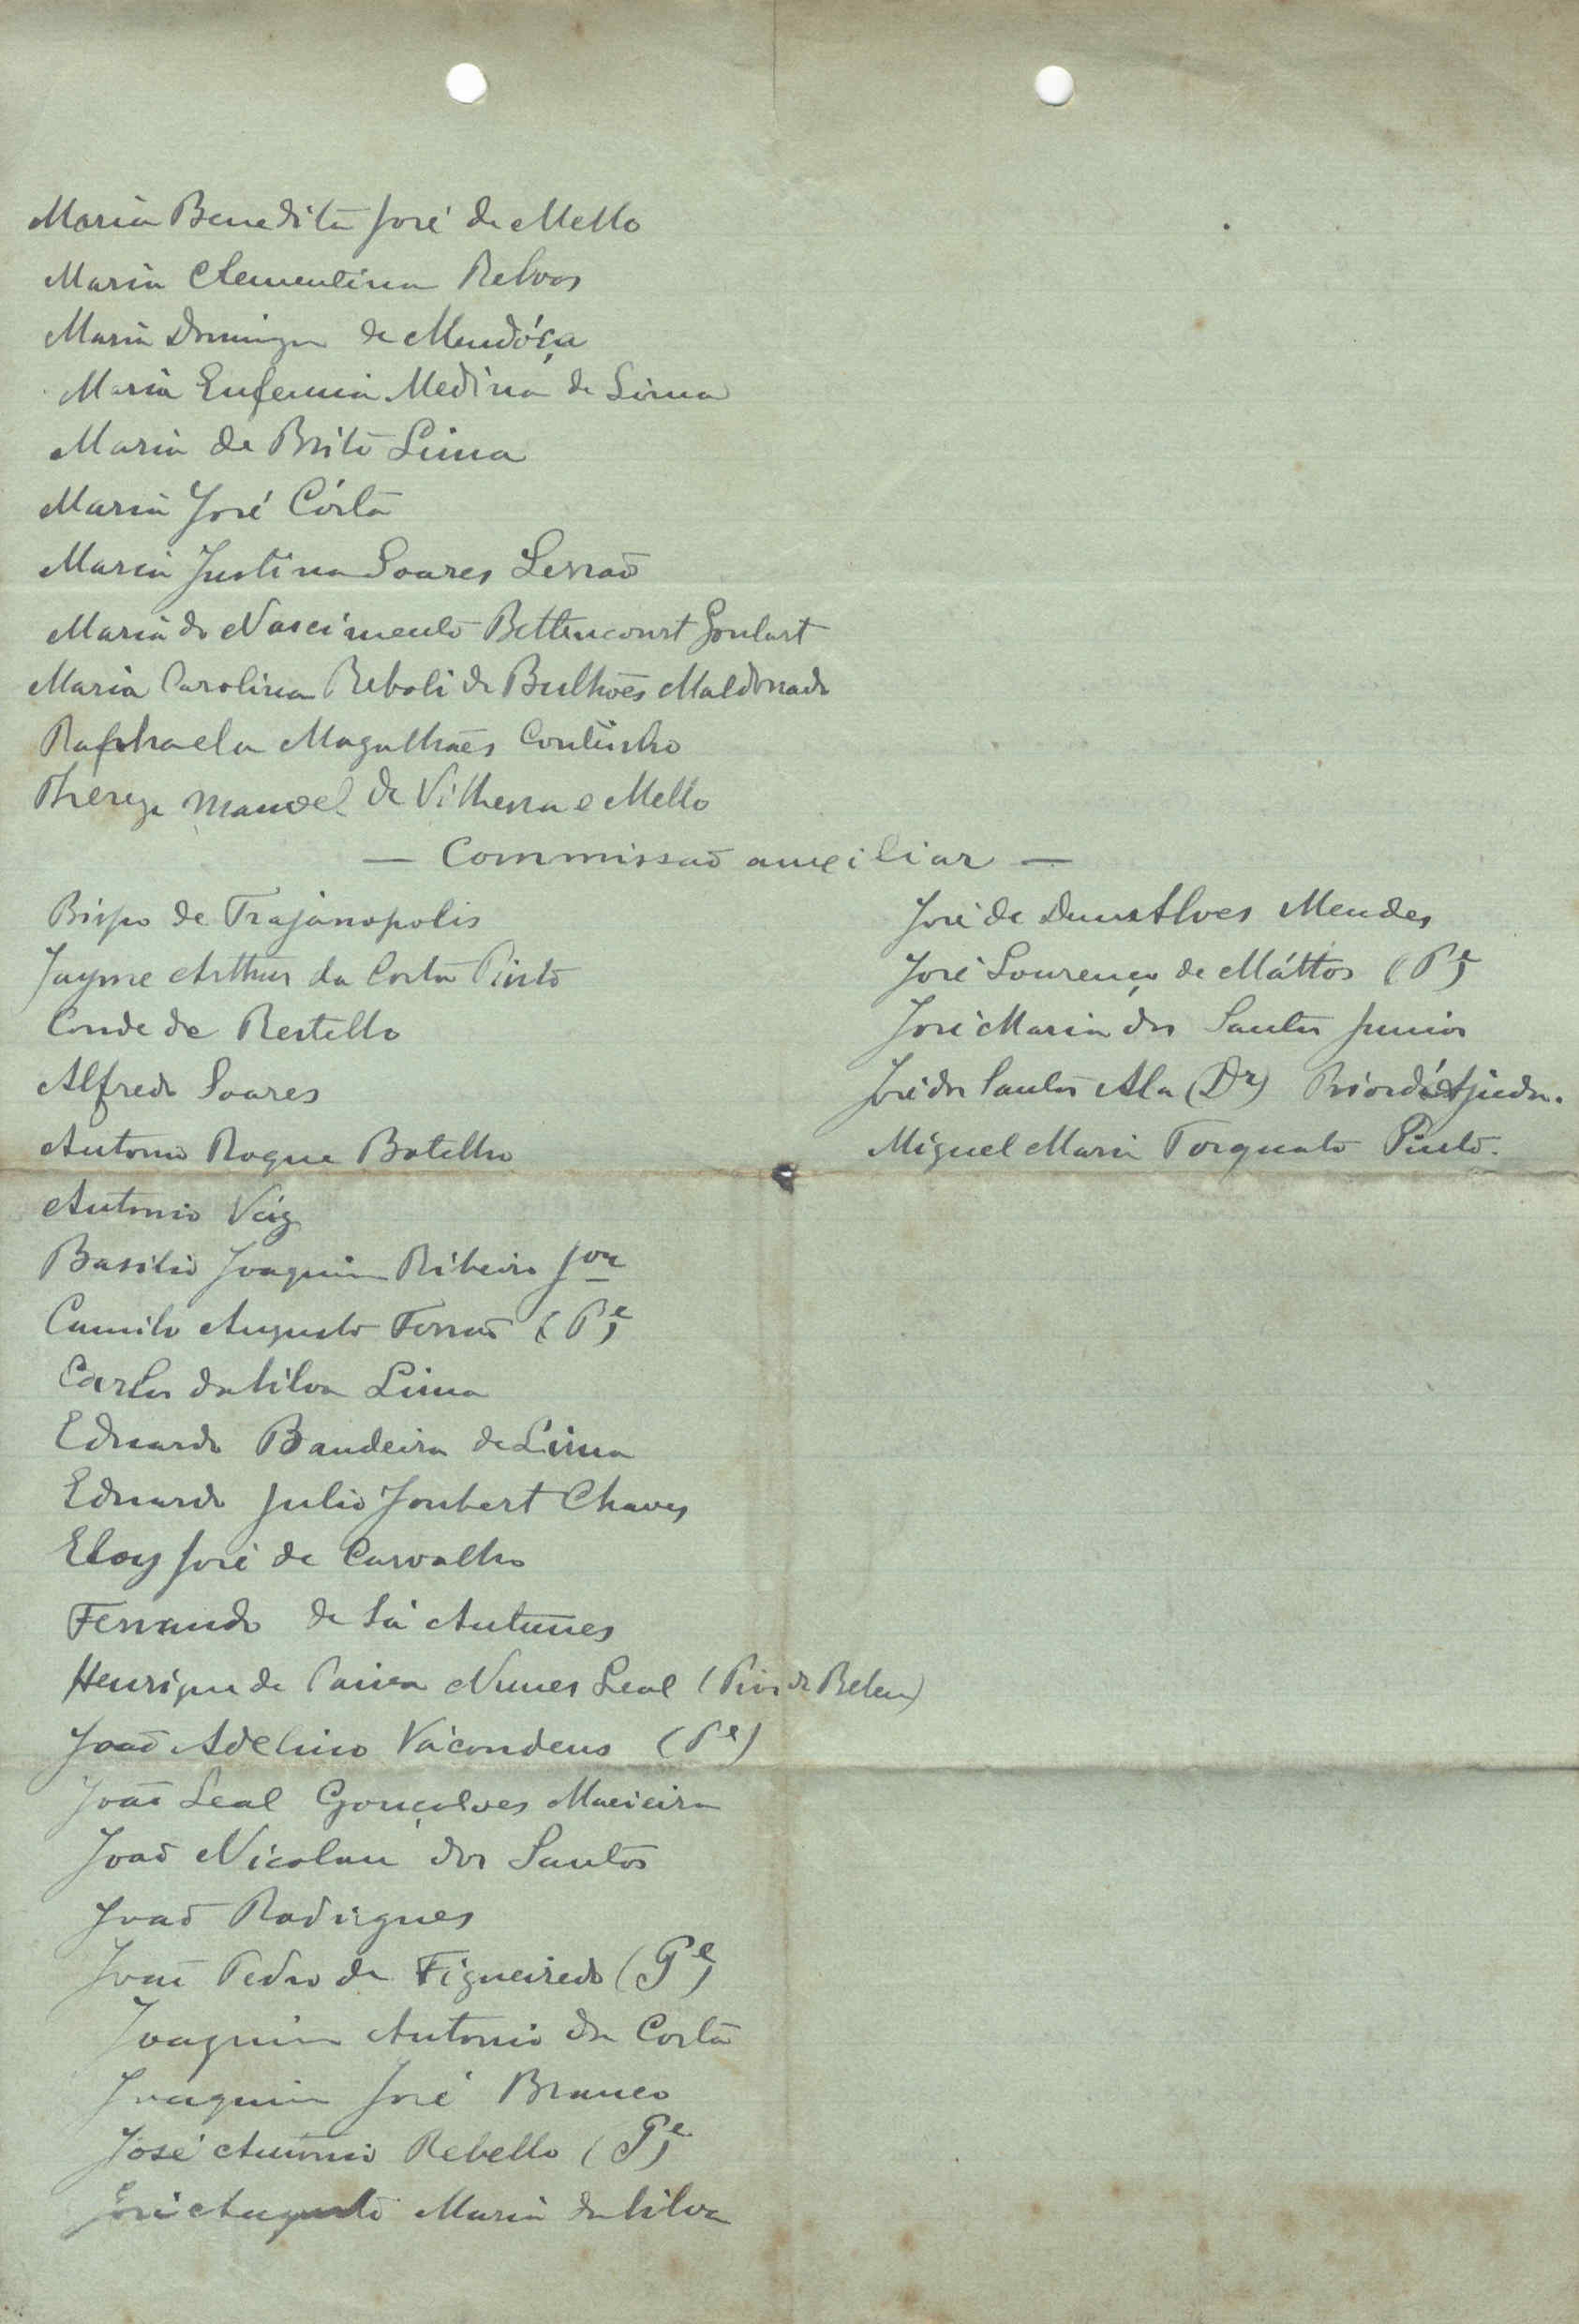 Maria Benedita José de Mello
Maria Clementina Relvas
Maria Domingas de Mendóça
Maria Eufemia Medina de Lima
Maria de Brito Lima
Maria José Cósta
Maria Justina Soares Serrão
Maria do Nascimento Bettencourt Goulart
Maria Carolina Reboli de Bulhões Maldonado
Raphaela Magalhães Coutinho
Thereza Manoel de Vilhena e Mello
— Commissaõ auxiliar —
Bispo de Trajanopolis
Jayme Arthur da Costa Pinto
Conde de Restello
Alfredo Soares
Antonio Roque Botelho
Antonio Vaz
Basilio Joaquim Ribeiro Jor
Camilo Augusto Ferraõ (Pe)
Carlos da Silva Lima
Eduardo Bandeira de Lima
Eduardo Julio Joubert Chaves
Eloy José de Carvalho
Fernando de Sá Antunes
Henrique de Paiva Nunes Leal (Prior de Belem)
Joaõ Adelino Vacondeus (Pe)
Joaõ Leal Gonçalves Macieira
Joaõ Nicolau dos Santos
Joaõ Rodrigues
Joaõ Pedro de Figueiredo (Pe)
Joaquim Antonio da Costa
Joaquim José Branco
José Antonio Rebello (Pe)
José Augusto Maria da Silva
José de Deus Alves Mendes
José Lourenço de Máttos (Pe)
José Maria dos Santos Junior
José dos Santos Ala (Dr) Prior d'Ajuda.
Miguel Maria Torquato Pinto.